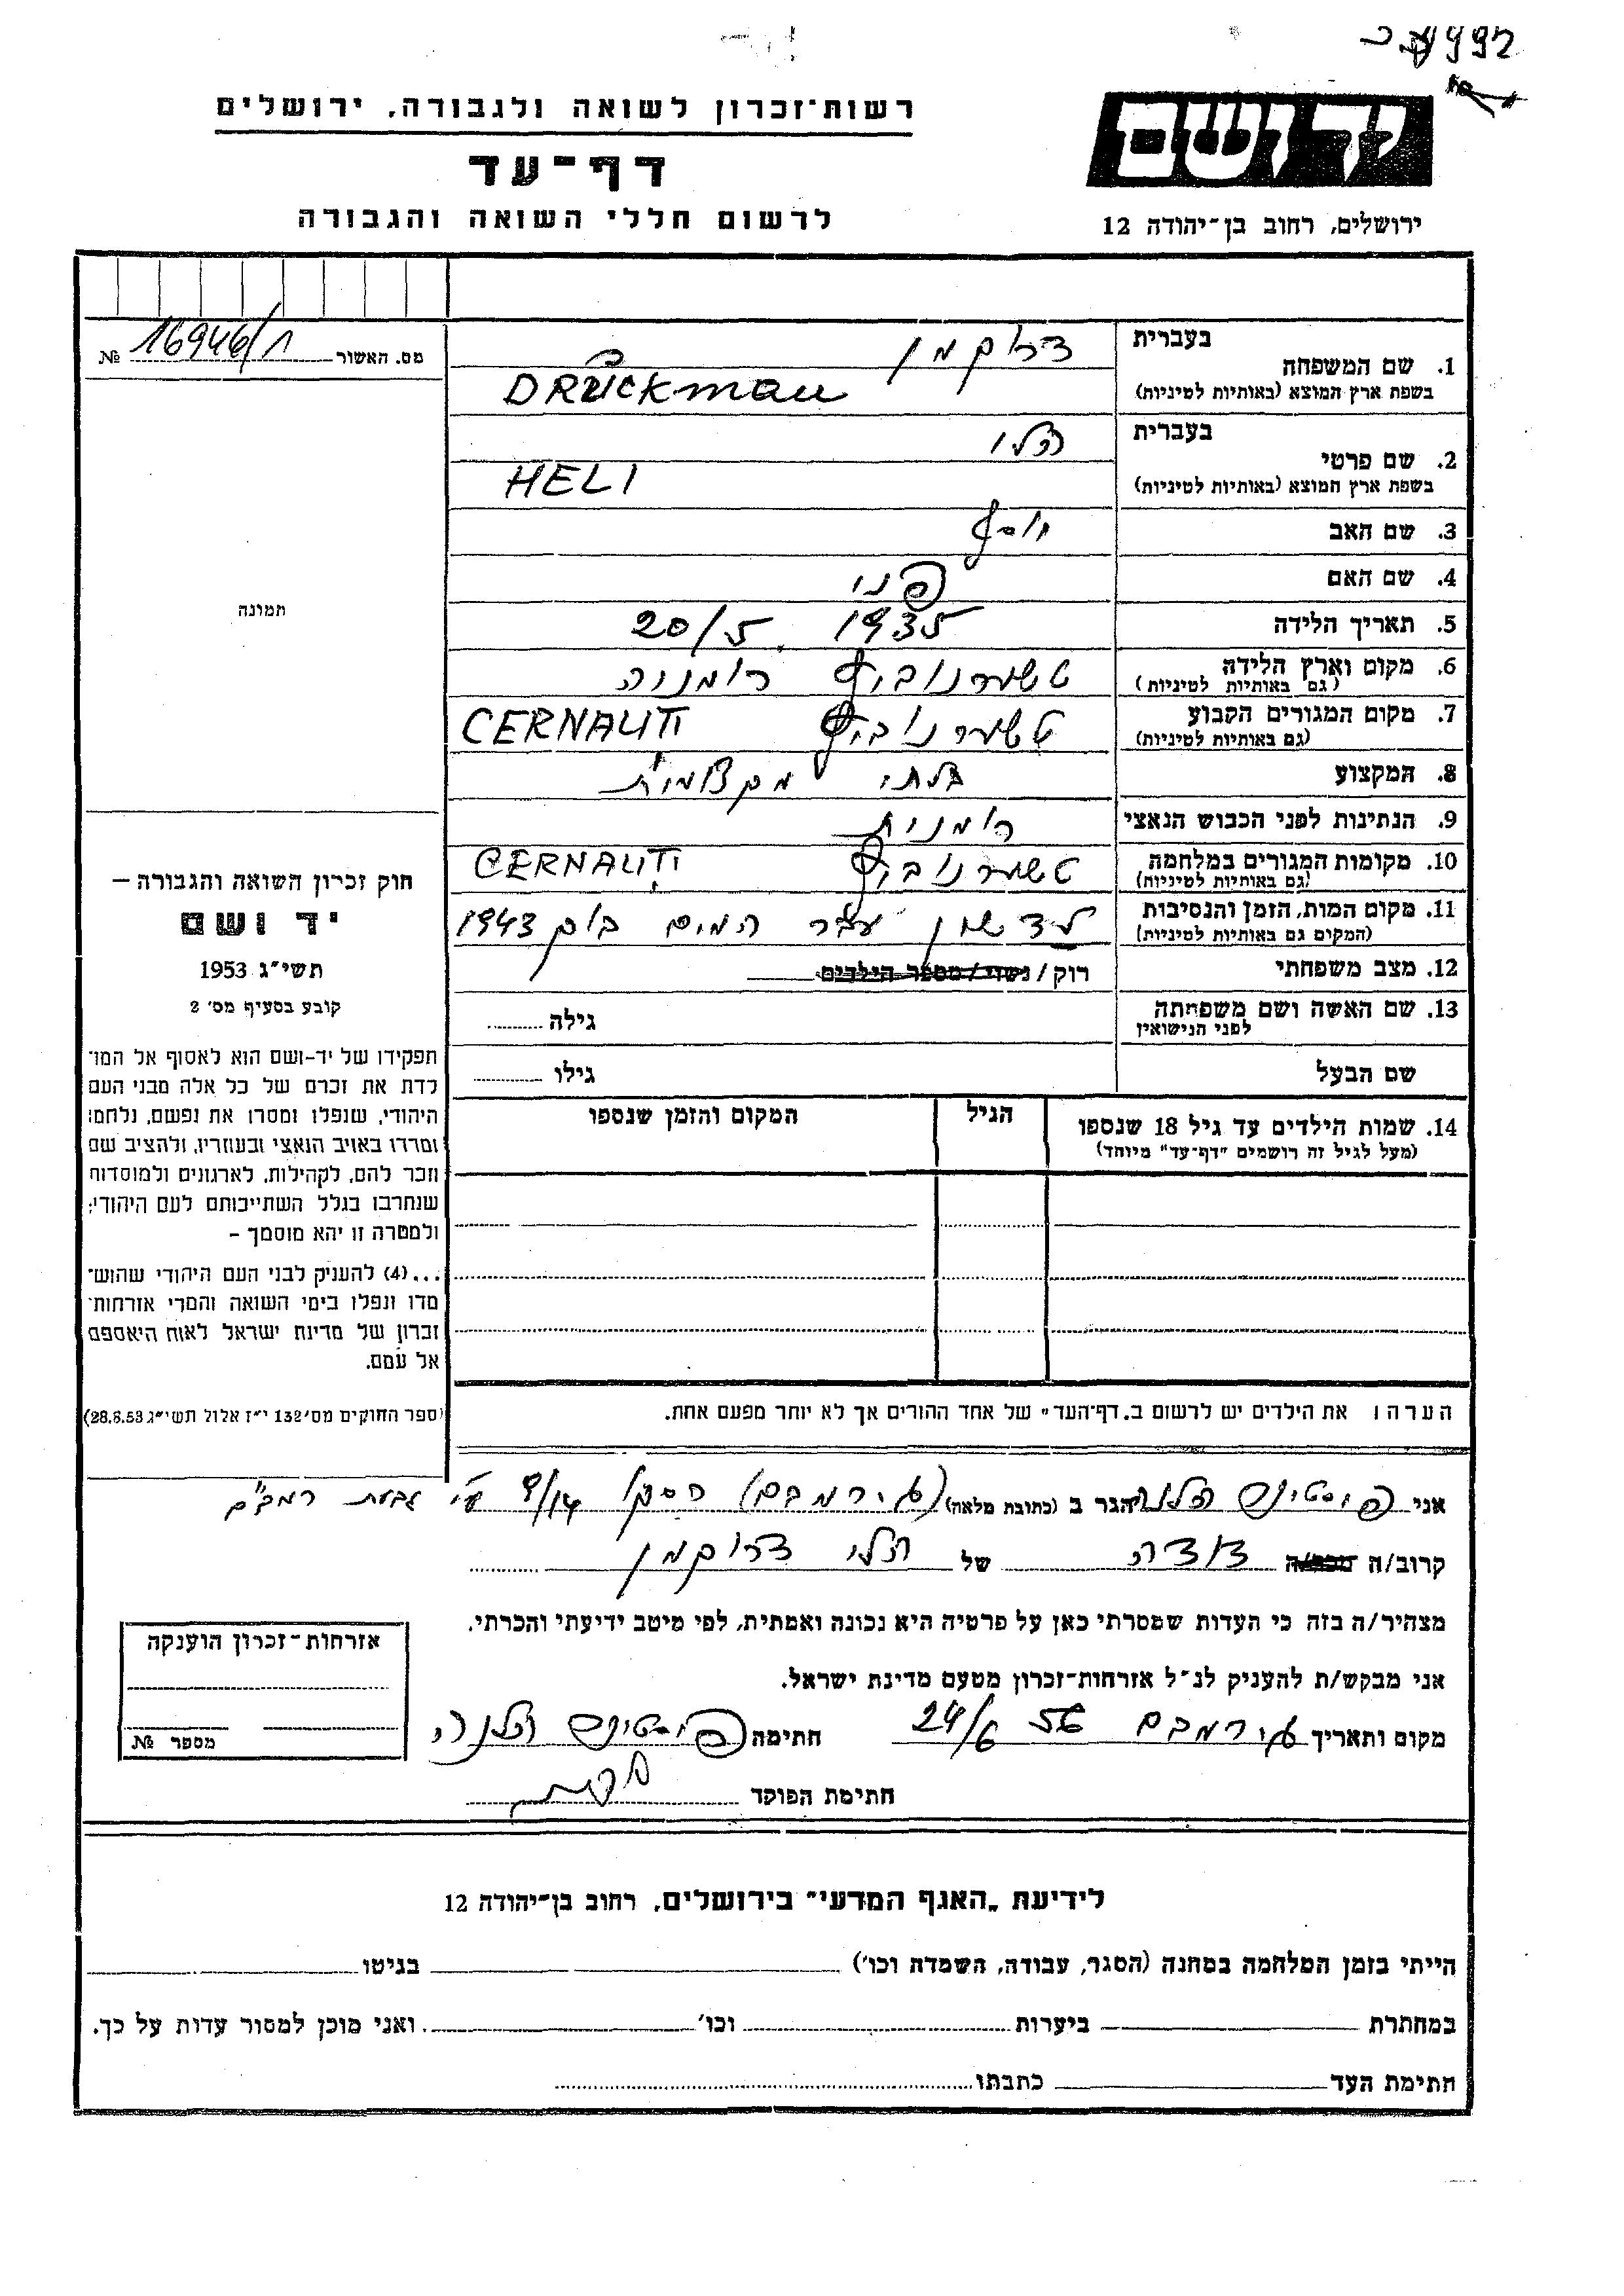 רשות־זכרון לשואה ולגבורה, ירושלים
דף־עד
לרשום חללי השואה והגבורה
יד ושם
ירושלים, רחוב בן־יהודה 12
מס. האשור 16946/1 №
1. שם המשפחה
בעברית דרוקמן
בשפת ארץ המוצא (באותיות לטיניות) DRUCKMAN
2. שם פרטי
בעברית הלי
בשפת ארץ המוצא (באותיות לטיניות) HELI
3. שם האב יוסף
4. שם האם פני
5. תאריך הלידה 20/5. 1935
6. מקום וארץ הלידה טשערנוביץ רומניה
(גם באותיות לטיניות)
7. מקום המגורים הקבוע טשערנוביץ CERNAUTI
(גם באותיות לטיניות)
8. המקצוע בלתי מקצועית
9. הנתינות לפני הכבוש הנאצי רומנית
10. מקומות המגורים במלחמה טשערנוביץ CERNAUTI
(גם באותיות לטיניות)
11. מקום המות, הזמן והנסיבות עבר המים בוק 1943
(המקום גם באותיות לטיניות)
12. מצב משפחתי רוק/נשוי/מספר הילדים
13. שם האשה ושם משפחתה גילה
לפני הנישואין
שם הבעל גילו
14. שמות הילדים עד גיל 18 שנספו הגיל המקום והזמן שנספו
(מעל לגיל זה רושמים "דף־עד" מיוחד)
הערה: את הילדים יש לרשום ב„דף־העד" של אחד ההורים אך לא יותר מפעם אחת.
תמונה
חוק זכרון השואה והגבורה –
יד ושם
תשי״ג 1953
קובע בסעיף מס׳ 2
תפקידו של יד־ושם הוא לאסוף אל המו־
לדת את זכרם של כל אלה מבני העם
היהודי, שנפלו ומסרו את נפשם, נלחמו
ומרדו באויב הנאצי ובעוזריו, ולהציב שם
וזכר להם, לקהילות, לארגונים ולמוסדות
שנחרבו בגלל השתייכותם לעם היהודי;
ולמטרה זו יהא מוסמך –
...(4) להעניק לבני העם היהודי שהוש־
מדו ונפלו בימי השואה והמרי אזרחות־
זכרון של מדינת ישראל לאות היאספם
אל עמם.
(ספר החוקים מס׳ 132 י״ז אלול תשי״ג 28.8.53)
אני הגר ב (כתובת מלאה) 9/14 ע״י גבעת רמב״ם
קרוב/ה מכר/ה דודה של הלי דרוקמן
מצהיר/ה בזה כי העדות שמסרתי כאן על פרטיה היא נכונה ואמתית, לפי מיטב ידיעתי והכרתי.
אני מבקש/ת להעניק לנ״ל אזרחות־זכרון מטעם מדינת ישראל.
מקום ותאריך 24/6 56 חתימה
חתימת הפוקד
אזרחות־זכרון הוענקה
מספר №
לידיעת „האגף המדעי" בירושלים, רחוב בן־יהודה 12
הייתי בזמן המלחמה במחנה (הסגר, עבודה, השמדה וכו׳) בגיטו
במחתרת ביערות וכו׳ ואני מוכן למסור עדות על כך.
חתימת העד כתבתו